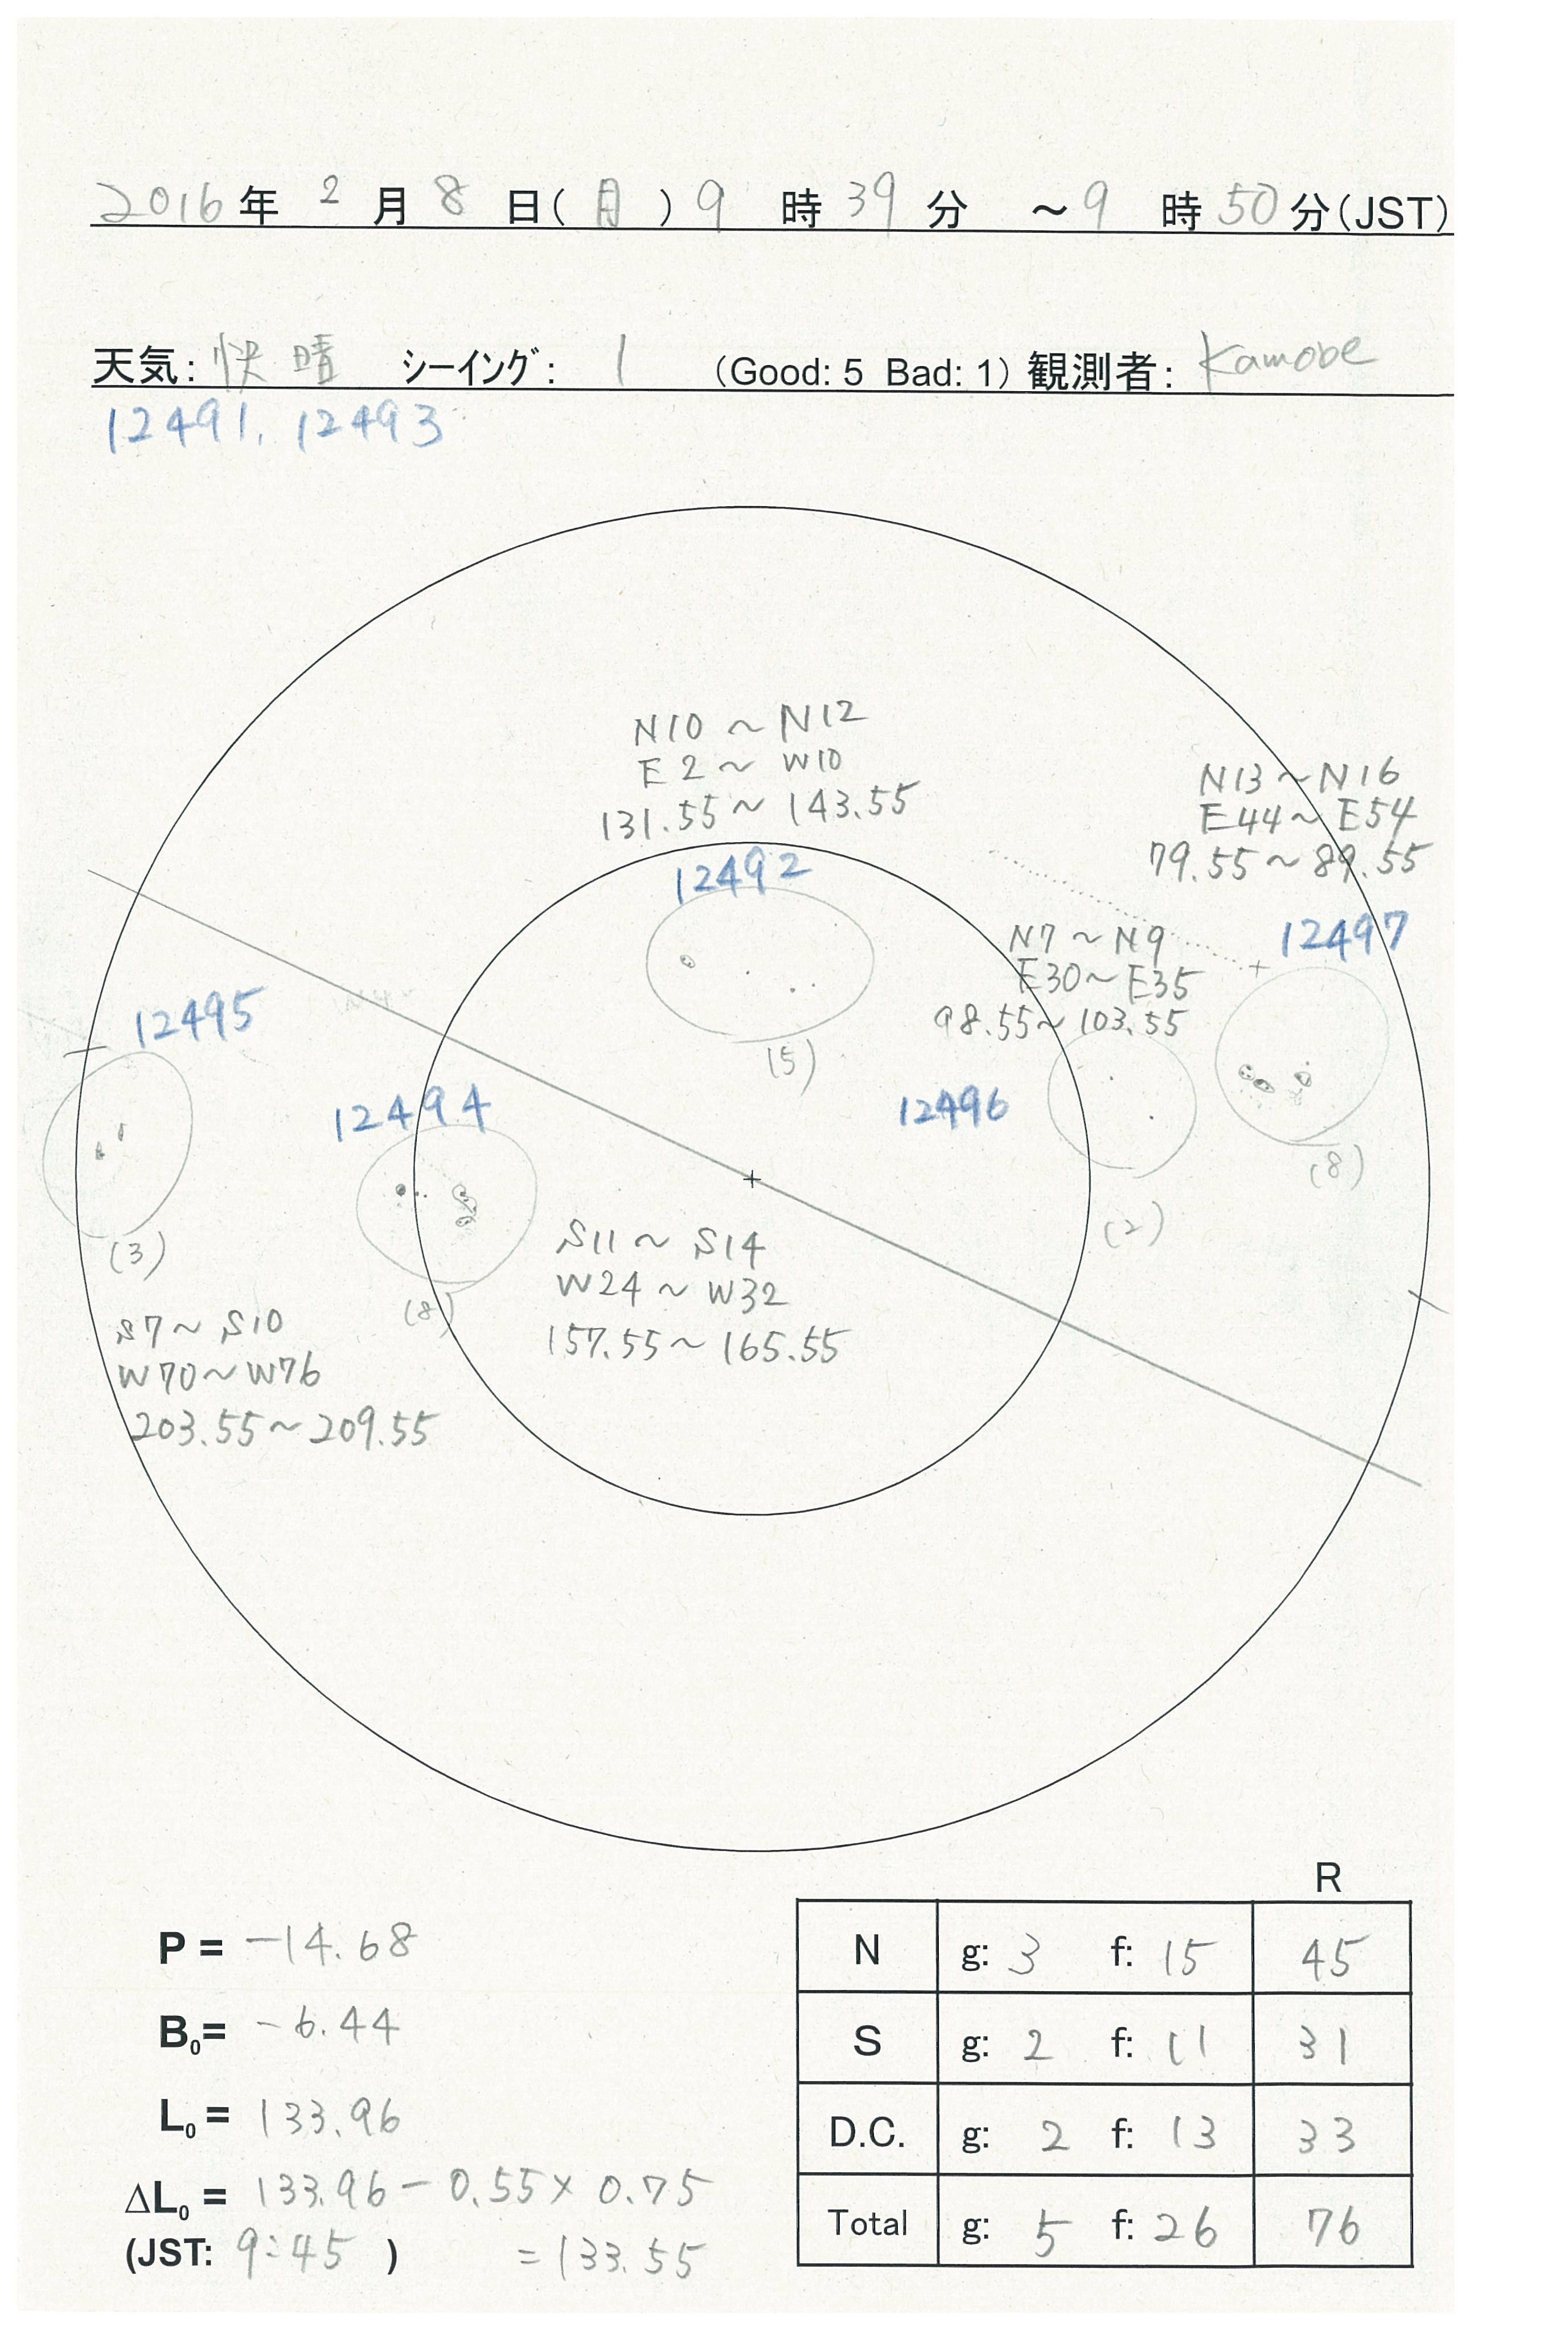 2016年 2月 8日(月) 9時 39分 ~9時 50分(JST)
天気: 快晴 シーイング: 1 (Good: 5 Bad: 1) 観測者: Kamobe
12491, 12493
N10 ~ N12
E2 ~ W10
131.55 ~ 143.55
12492
(5)
N13 ~ N16
E44 ~ E54
79.55 ~ 89.55
12497
(8)
N7 ~ N9
E30 ~ E35
98.55 ~ 103.55
12496
(2)
12495
(3)
S7 ~ S10
W70 ~ W76
203.55 ~ 209.55
12494
(8)
S11 ~ S14
W24 ~ W32
157.55 ~ 165.55
P = -14.68
B0= -6.44
L0 = 133.96
ΔL0 = 133.96 - 0.55 × 0.75
(JST: 9:45 ) = 133.55
R
N g: 3 f: 15 45
S g: 2 f: 11 31
D.C. g: 2 f: 13 33
Total g: 5 f: 26 76